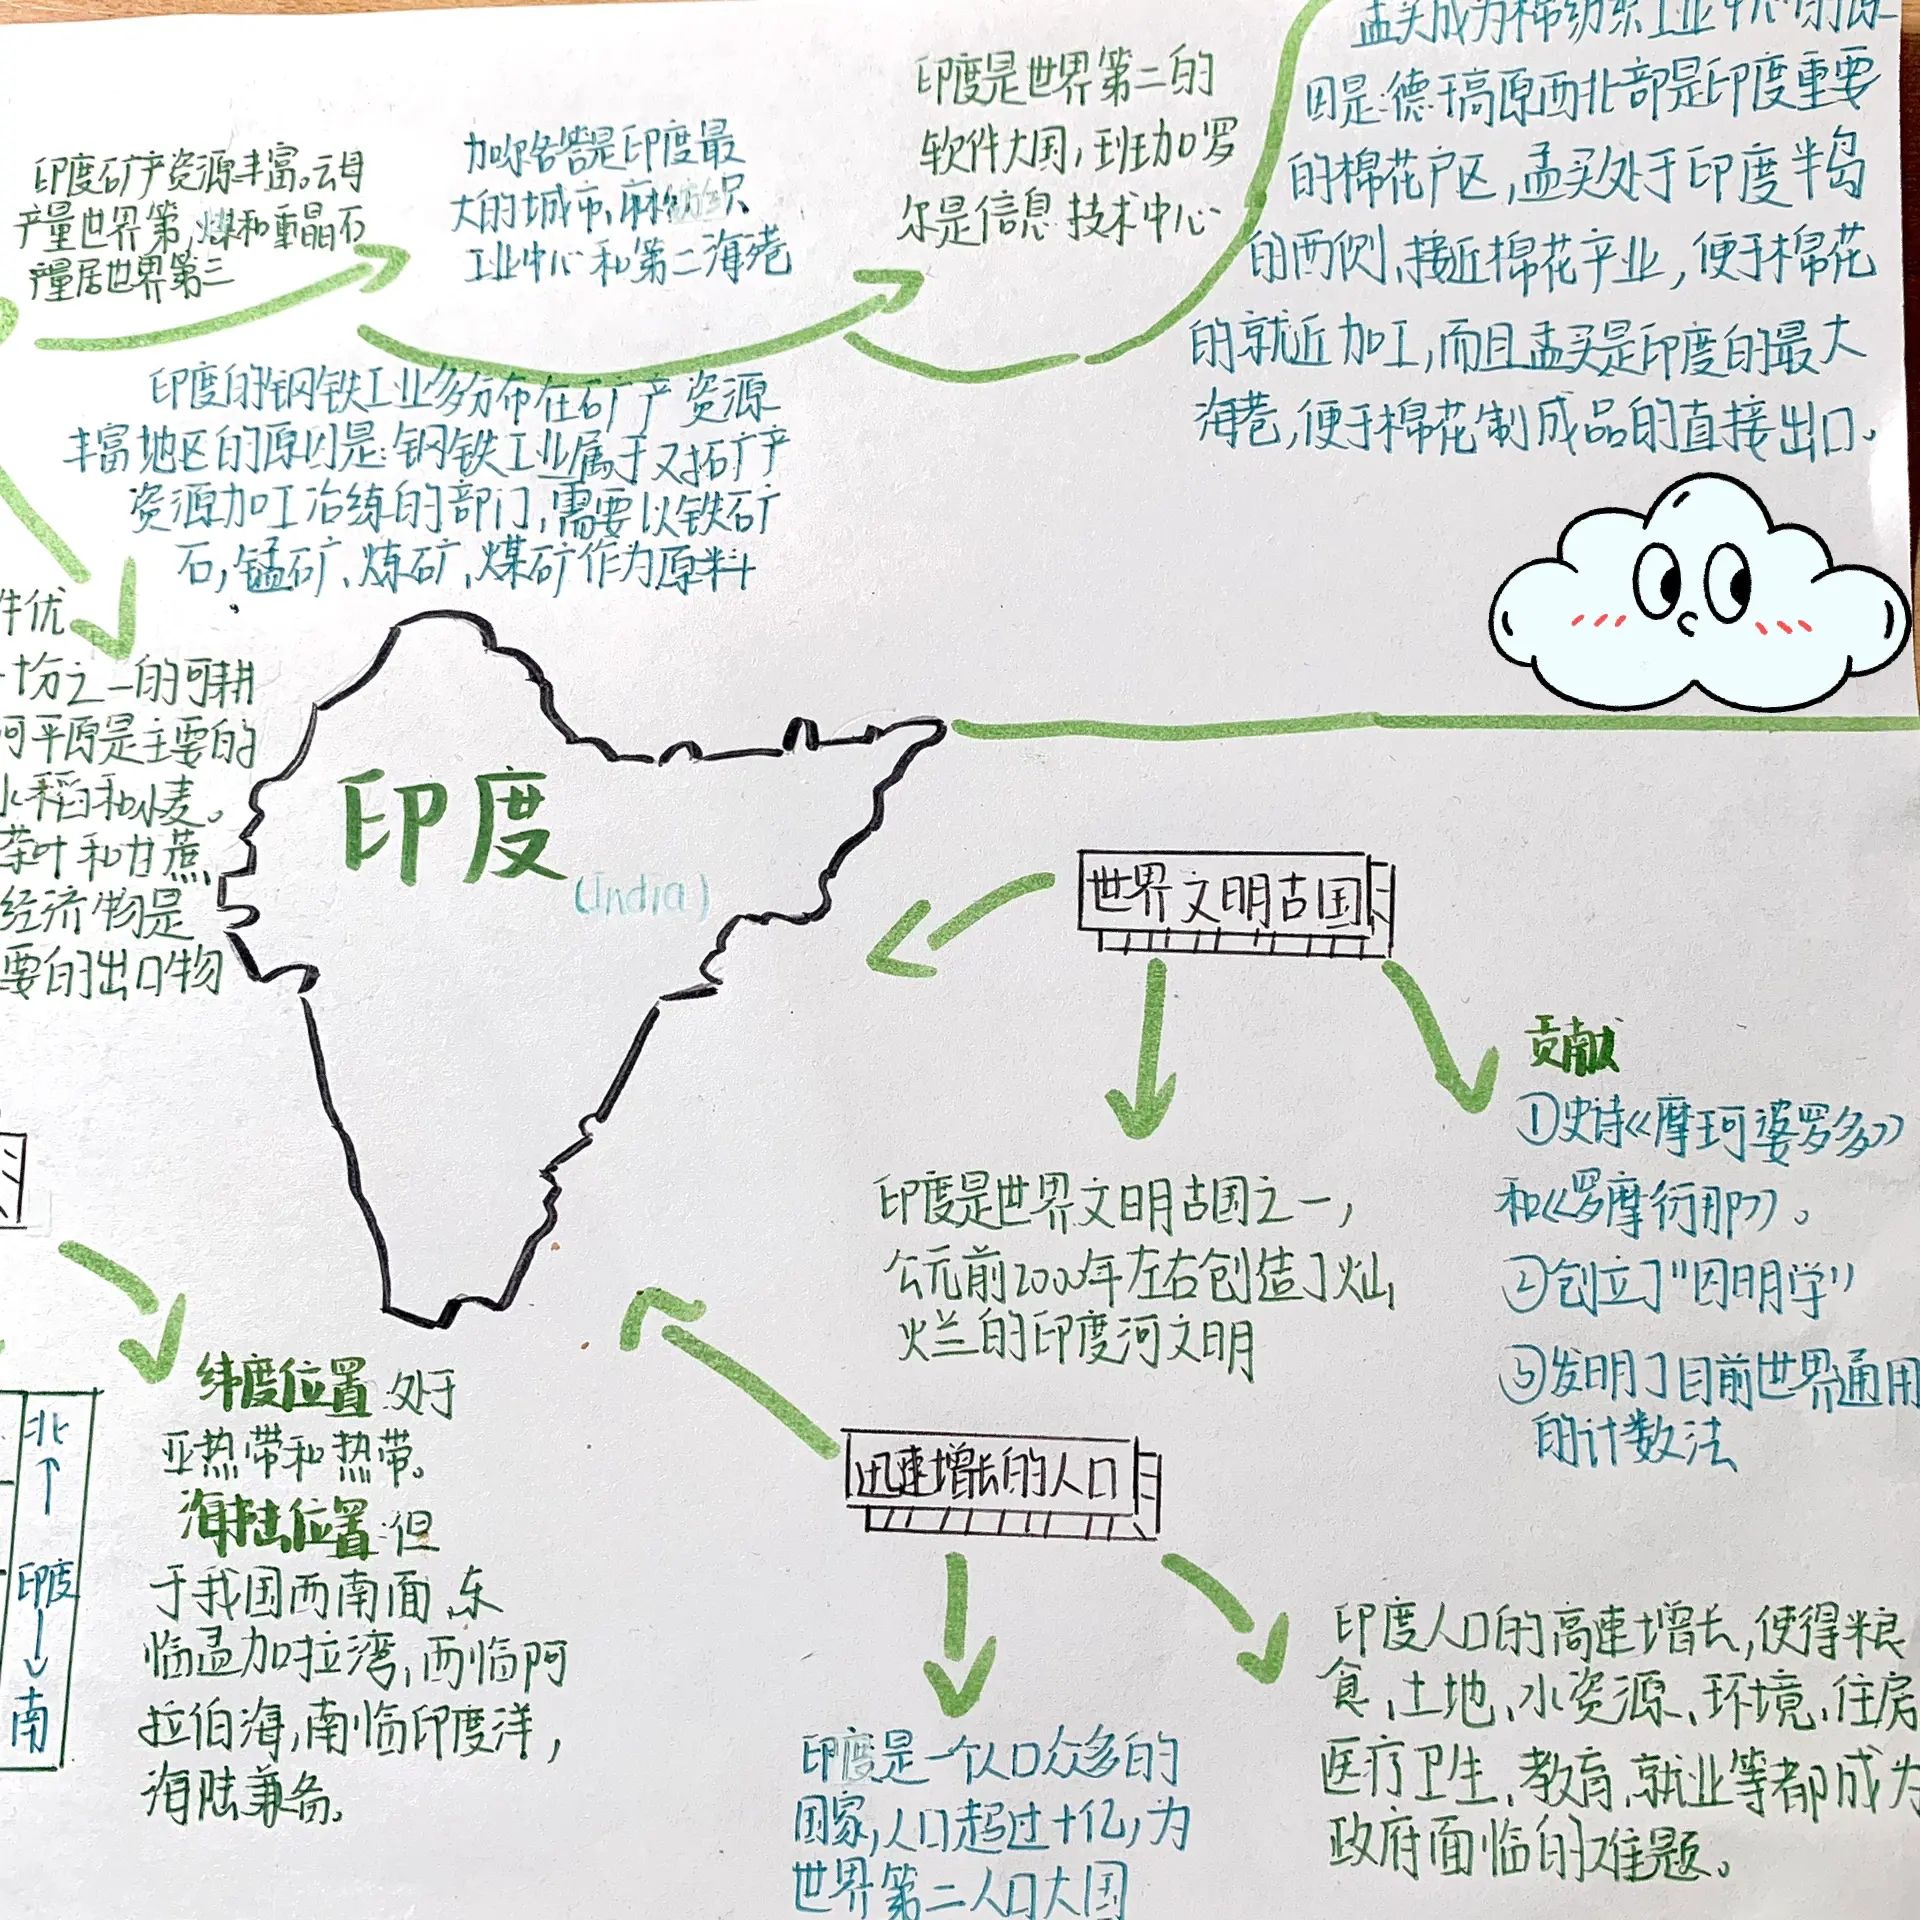 孟买成为棉纺织工业中心的原
因是:德干高原西北部是印度重要
的棉花产区,孟买处于印度半岛
的西侧,接近棉花产业,便于棉花
的就近加工,而且孟买是印度的最大
海港,便于棉花制成品的直接出口。
印度是世界第二的
软件大国,班加罗
尔是信息技术中心
加尔各答是印度最
大的城市,麻纺织
工业中心和第二海港
印度矿产资源丰富。云母
产量世界第一,煤和重晶石
产量居世界第三
印度的钢铁工业多分布在矿产资源
丰富地区的原因是:钢铁工业属于对矿产
资源加工冶练的部门,需要以铁矿
石,锰矿、炼矿、煤矿作为原料
件优
十分之一的可耕
河平原是主要的
水稻和小麦。
茶叶和甘蔗
经济物是
要的出口物
印度
(India)
世界文明古国
贡献
①史诗《摩珂婆罗多》
和《罗摩衍那》。
②创立了"因明学"
③发明了目前世界通用
的计数法
印度是世界文明古国之一,
公元前2000年左右创造了灿
烂的印度河文明
纬度位置:处于
亚热带和热带。
海陆位置:但
于我国西南面、东
临孟加拉湾,西临阿
拉伯海,南临印度洋,
海陆兼备。
北
印度
南
迅速增长的人口
印度是一个人口众多的
国家,人口超过十亿,为
世界第二人口大国
印度人口的高速增长,使得粮
食、土地、水资源、环境、住房
医疗卫生、教育、就业等都成为
政府面临的难题。